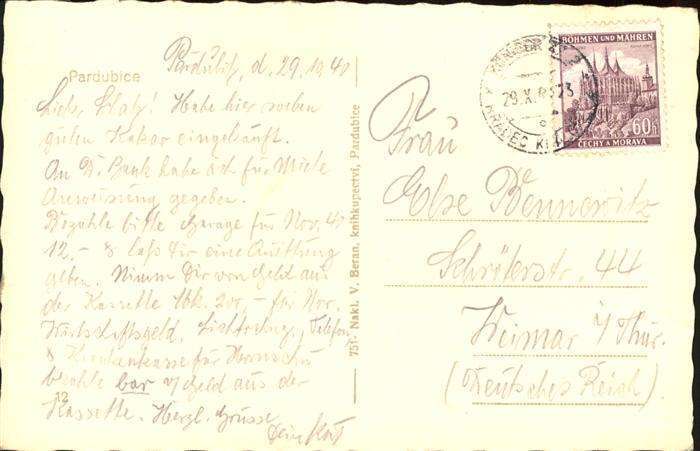 Pardubice
Pardubitz, d. 29.10.41
Lieb. Schatz! Habe hier soeben
guten Kakao eingekauft.
An D. Bank habe ich für Miete
Anweisung gegeben.
Bezahle bitte Garage für Nov. 41
12.- & laß Dir eine Quittung
geben. Nimm Dir von Geld aus
der Kassette Mk. 200,- für Nov.
Wirtschaftsgeld. Lichtrechng., Telefon
& Krankenkasse für
bezahle bar v/ Geld aus der
Kassette. Herzl. Grüsse
Dein Kurt
12
751 - Nakl. V. Beran, knihkupectví, Pardubice
BÖHMEN UND MÄHREN
60 h
ČECHY A MORAVA
29.X.
HRADEC KR
Frau
Else Bennewitz
Schröterstr. 44
Weimar i/Thür.
(Deutsches Reich)